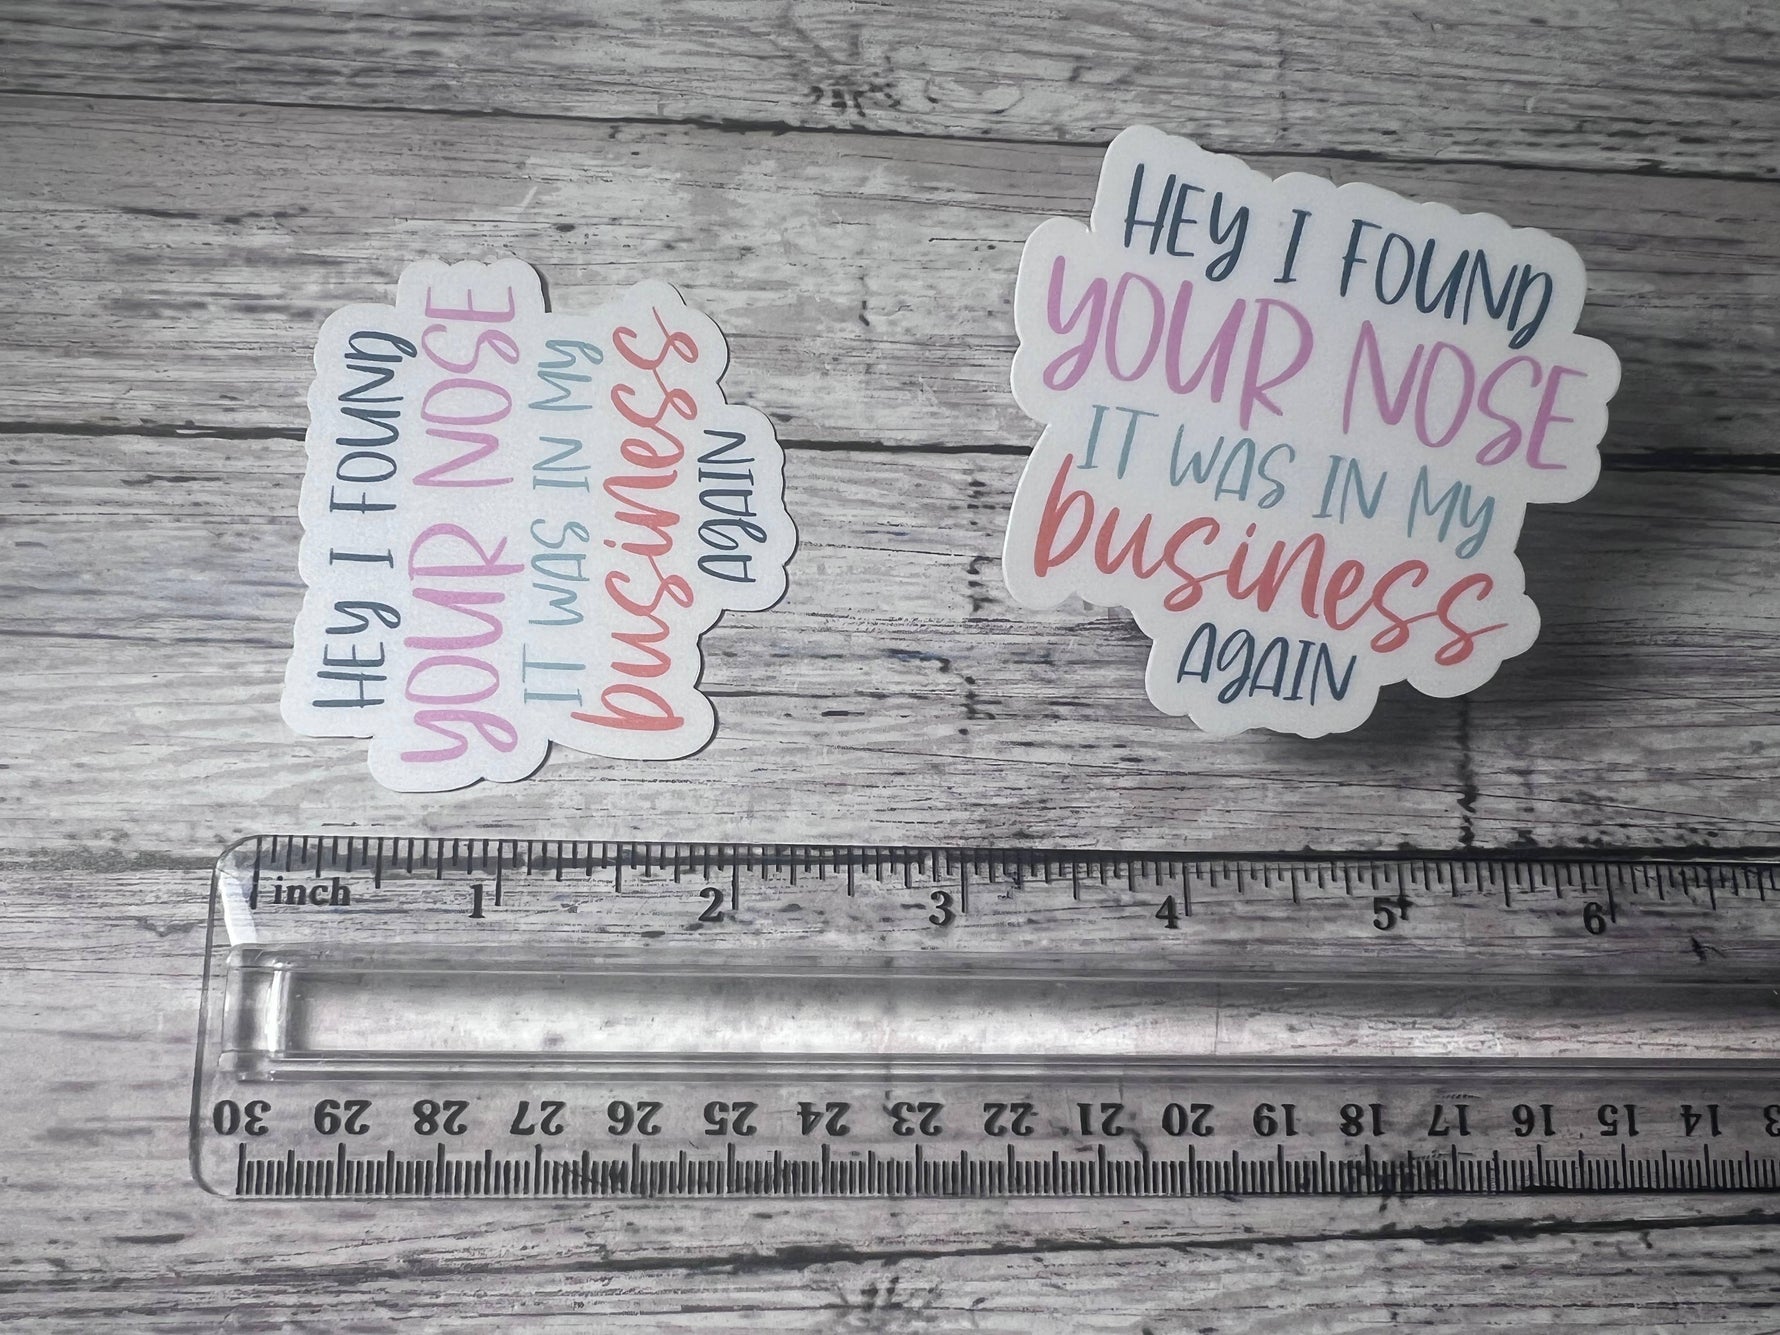 HEY I FOUND
YOUR NOSE
IT WAS IN MY
business
AGAIN
HEY I FOUND
YOUR NOSE
IT WAS IN MY
business
AGAIN
inch 1 2 3 4 5 6
30 29 28 27 26 25 24 23 22 21 20 19 18 17 16 15 14